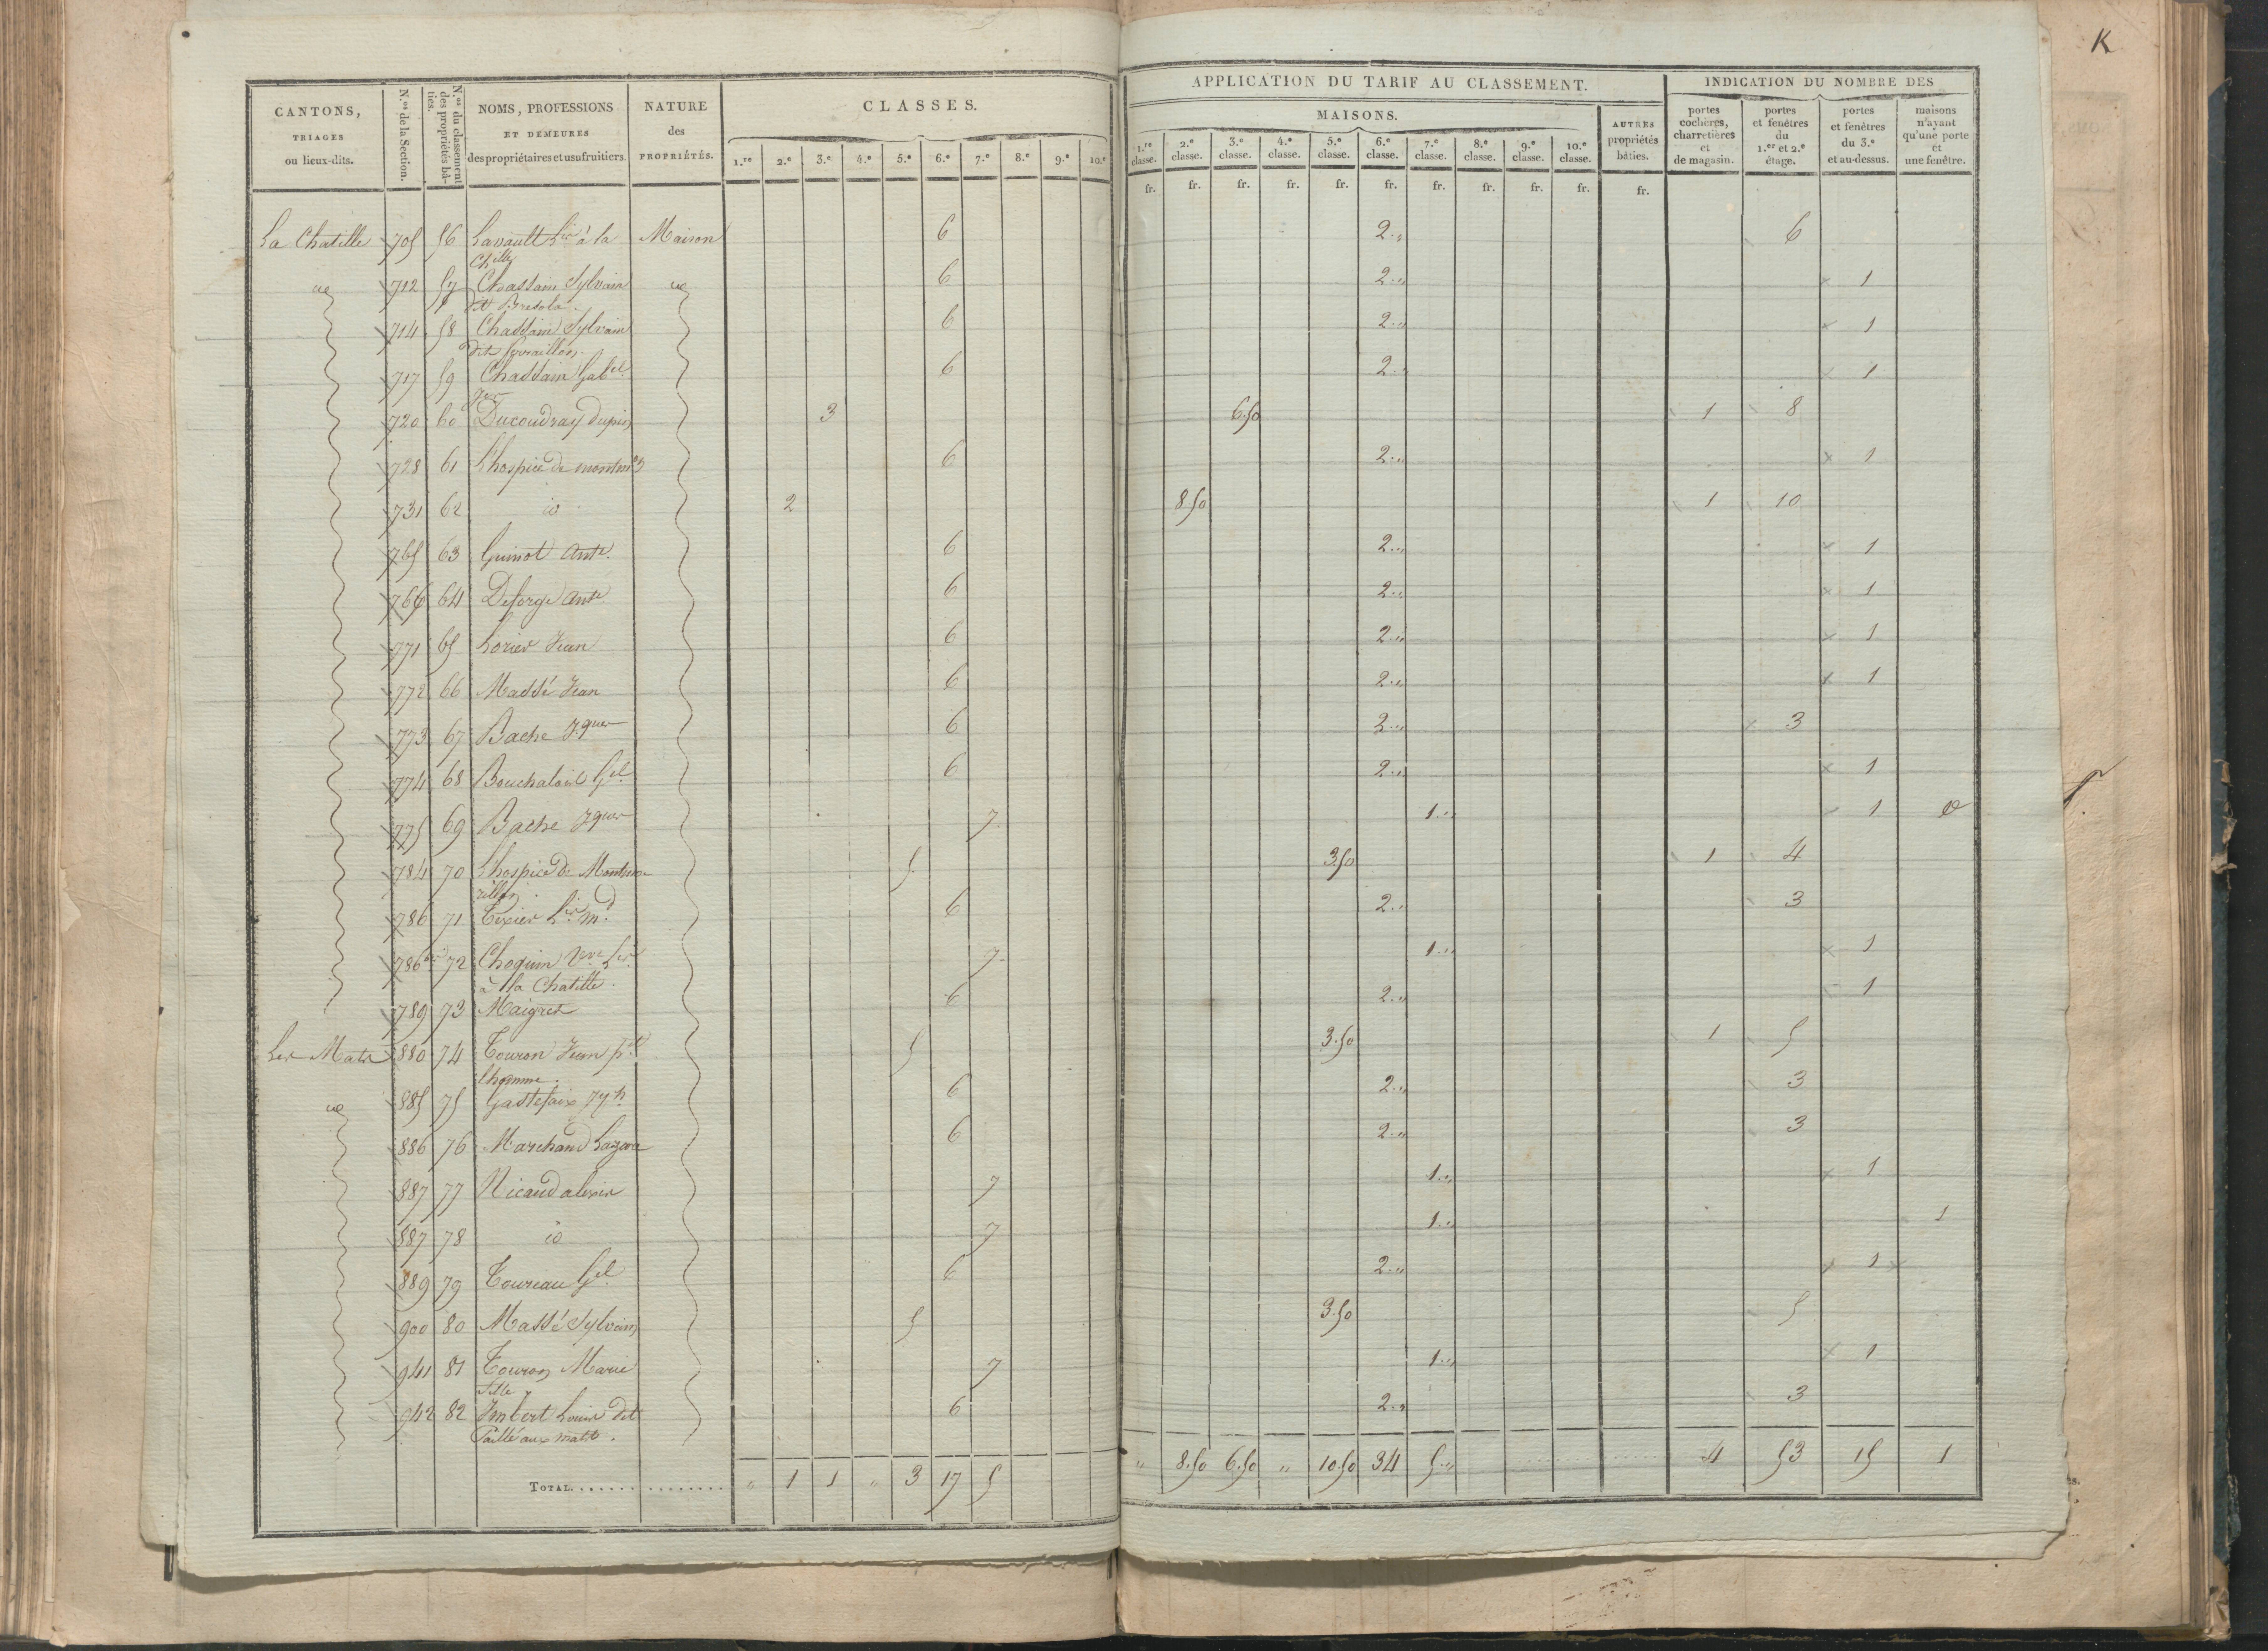 K
CANTONS,
TRIAGES
ou lieux-dits.
N.os de la Section.
N.os du classement des propriétés bâ-
ties.
NOMS, PROFESSIONS
ET DEMEURES
des propriétaires et usufruitiers.
NATURE
des
PROPRIÉTÉS.
CLASSES.
1.re 2.e 3.e 4.e 5.e 6.e 7.e 8.e 9.e 10.e
APPLICATION DU TARIF AU CLASSEMENT.
MAISONS.
1.re classe. 2.e classe. 3.e classe. 4.e classe. 5.e classe. 6.e classe. 7.e classe. 8.e classe. 9.e classe. 10.e classe.
AUTRES
propriétés
bâties.
fr. fr. fr. fr. fr. fr. fr. fr. fr. fr. fr.
INDICATION DU NOMBRE DES
portes
cochères,
charretières
et
de magasin.
portes
et fenêtres
du
1.er et 2.e
étage.
portes
et fenêtres
du 3.e
et au-dessus.
maisons
n'ayant
qu'une porte
et
une fenêtre.
La Chatille 705 56 Lavault à la Maison 6 2 " 6
712 57 Chassain Sylvain 6 2 " 1
714 58 Chassain Sylvain 6 2 " 1
dit
717 59 Chassain Gab.el 6 2 " 1
720 60 Ducoudray dupin 3 6.50 1 8
728 61 L'hospice de 6 2 " 1
731 62 id 2 8.50 1 10
765 63 Guimot Ant.e 6 2 " 1
766 64 Deforge Ant.e 6 2 " 1
771 65 Lorier Jean 6 2 " 1
772 66 Massé Jean 6 2 " 1
773 67 Bache Jques 6 2 " 3
774 68 Gel 6 2 " 1
775 69 Bache Jques 7 1 " 1
784 70 L'hospice de Montmo-
rillon 5 3.50 1 4
786 71 Texier md 6 2 " 3
786 bis 72 Choquin Vve 7 1 " 1
à la Chatille
789 73 Maigret 6 2 " 1
Les Mats 880 74 Touron Jean 5 3.50 1 5
885 75 Gastefaix Jph 6 2 " 3
886 76 Marchand 6 2 " 3
887 77 Nicaud alexis 7 1 " 1
887 78 id 7 1 " 1
889 79 Toureau Gel 6 2 " 1
900 80 Massé Sylvain 5 3.50 5
941 81 Touron Marie 7 1 " 1
fille
942 82 Imbert Louis dit 6 2 " 3
TOTAL " 1 1 " 3 17 5 " 8.50 6.50 " 10.50 34 5 " 4 53 15 1